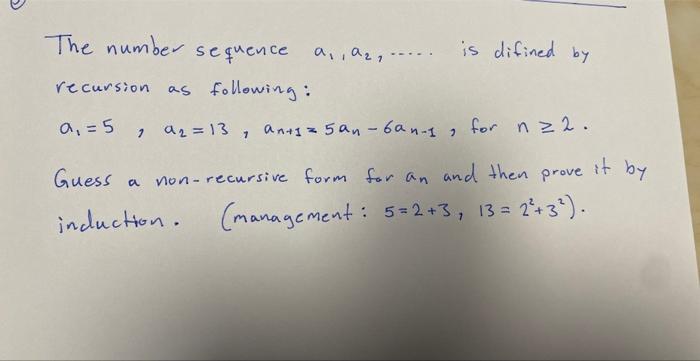 The number sequence a₁, a₂, ..... is difined by
recursion as following:
a₁ = 5 , a₂ = 13 , aₙ₊₁ = 5aₙ - 6aₙ₋₁ , for n ≥ 2.
Guess a non-recursive form for an and then prove it by
induction. (management: 5 = 2+3, 13 = 2²+3²).